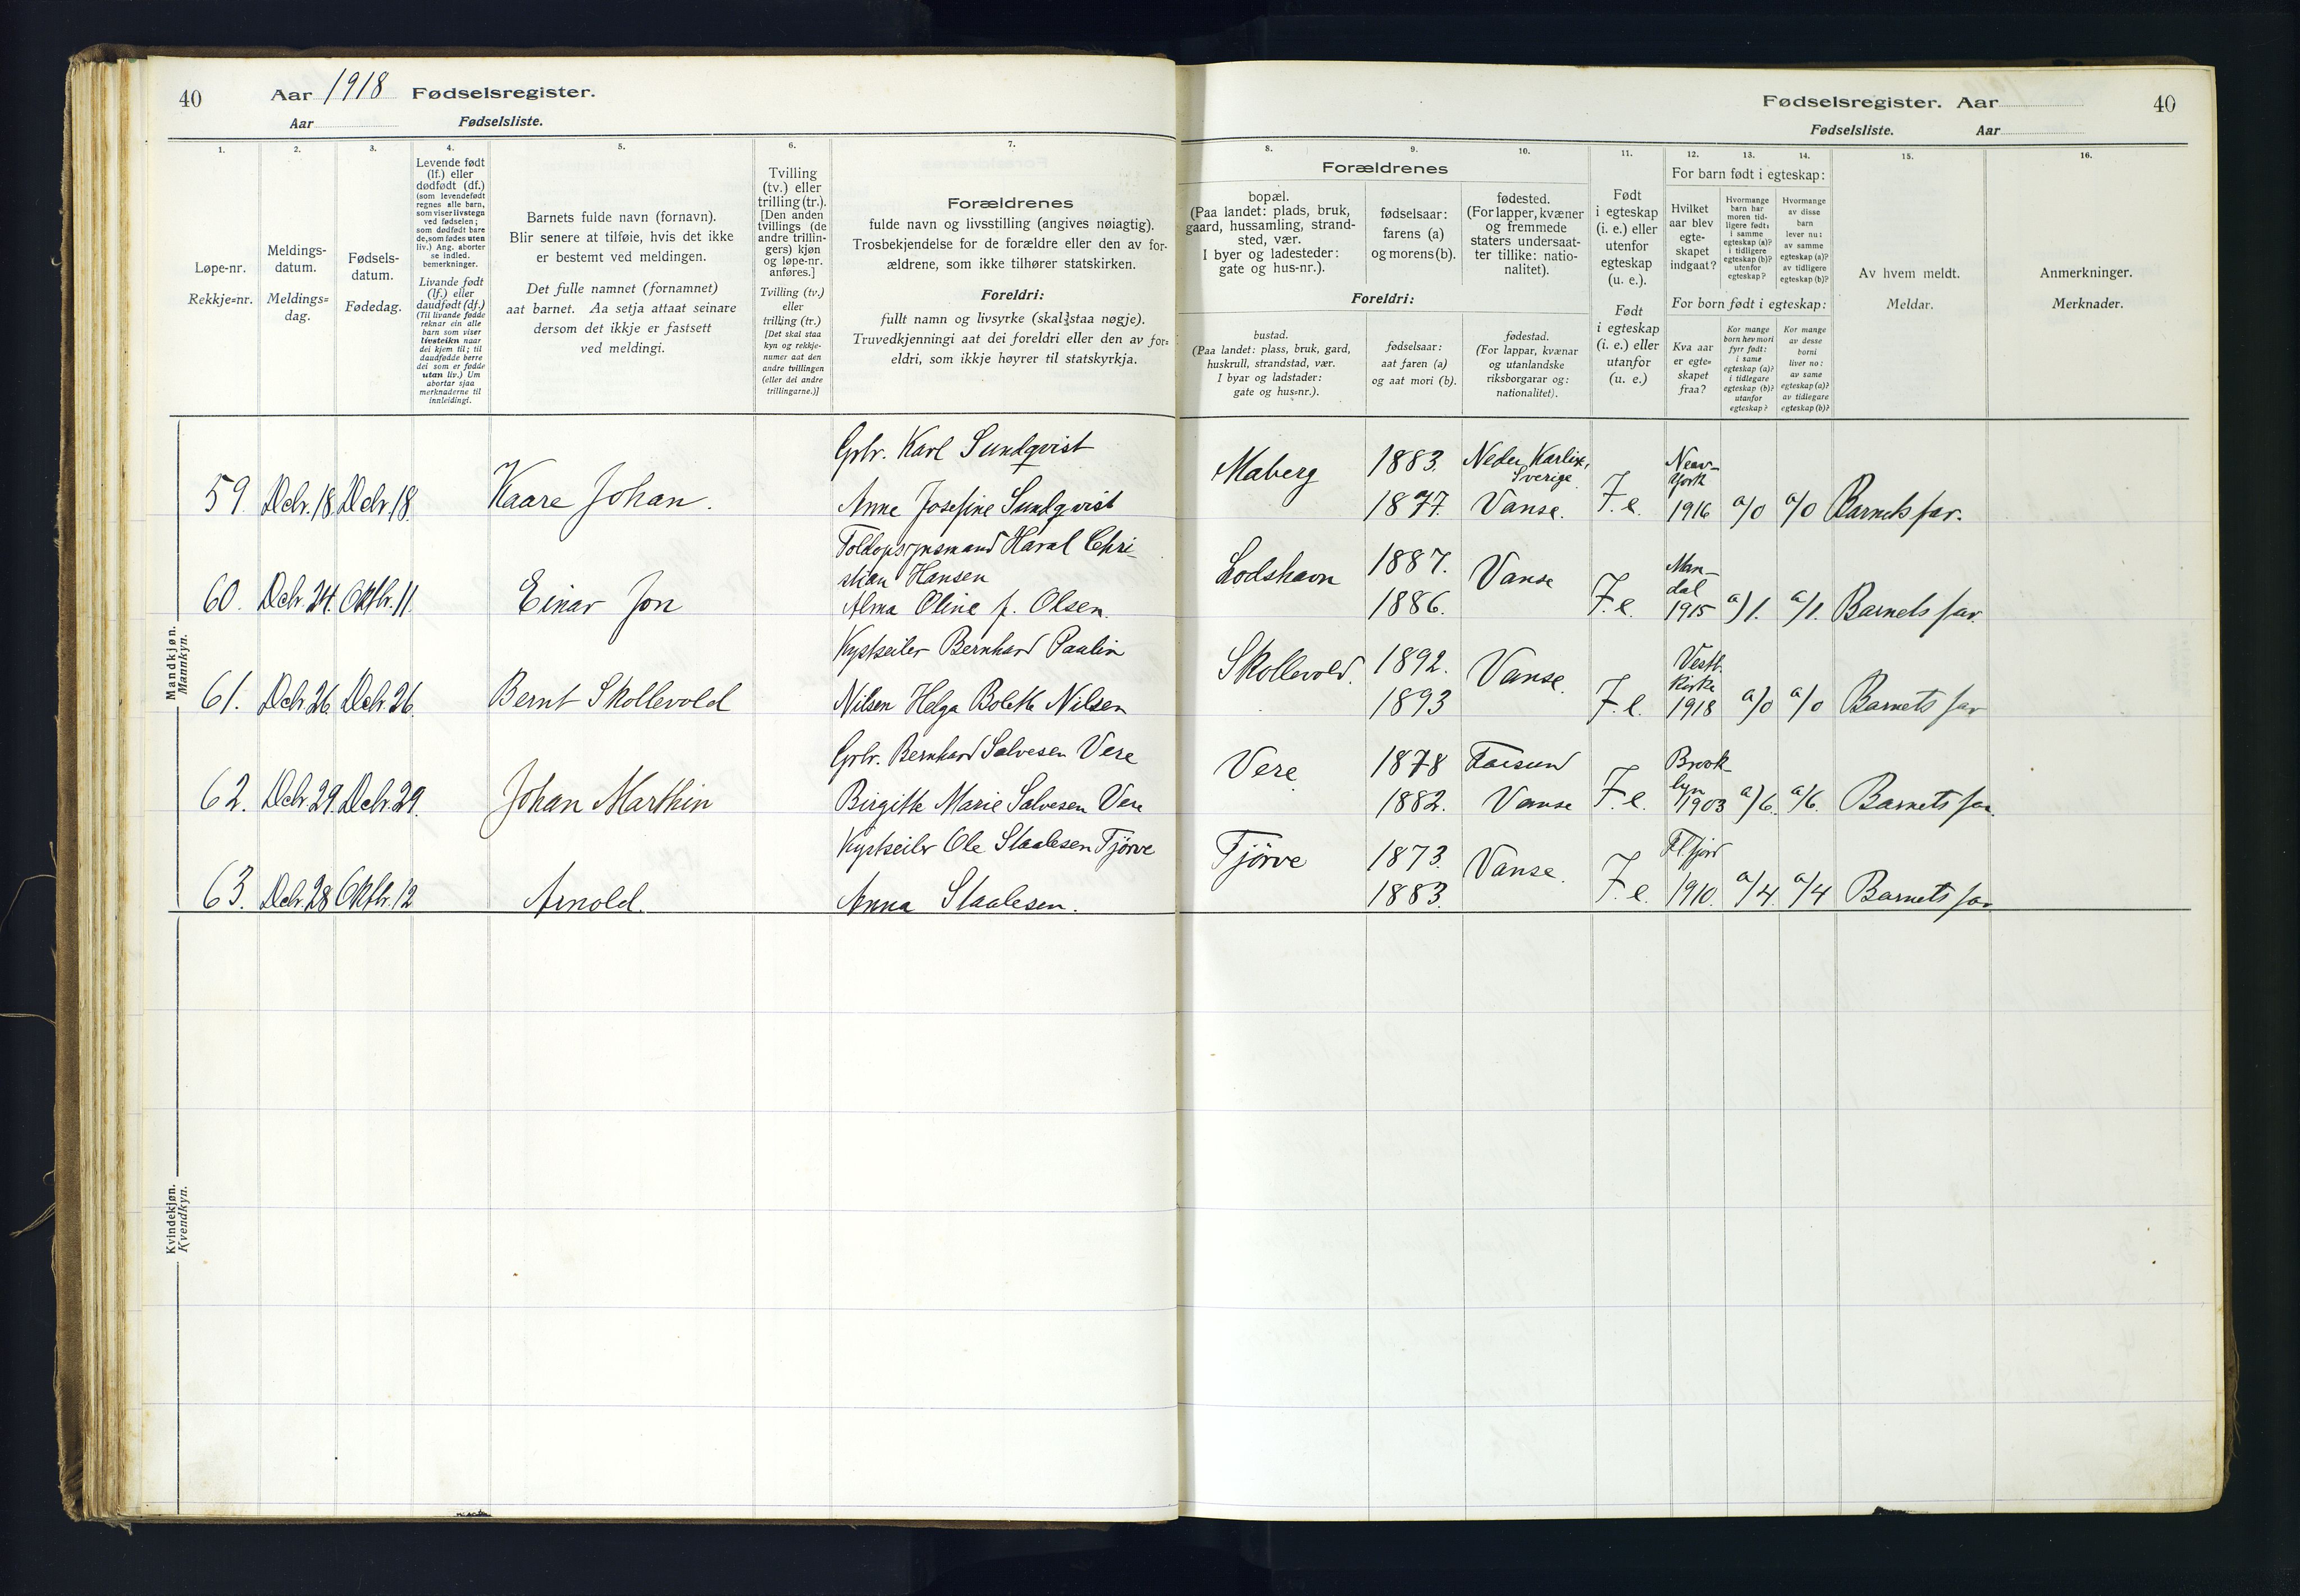 40 Aar 1918 Fødselsregister.
Aar Fødselsliste.
Fødselsregister. Aar 40
Fødselsliste. Aar
1.
Løpe-nr.
Rekkje=nr.
2.
Meldings-
datum.
Meldings=
dag.
3.
Fødsels-
datum.
Fødedag.
4.
Levende født
(lf.) eller
dødfødt (df.)
(som levendefødt
regnes alle barn,
som viser livstegn
ved fødselen;
som dødfødt bare
de, som fødes uten
liv.) Ang. aborter
se indled.
bemerkninger.
Livande født
(lf.) eller
daudfødt (df.)
(Til livande fødde
reknar ein alle
barn som viser
livsteikn naar
dei kjem til; til
daudfødde berre
dei som er fødde
utan liv.) Um
abortar sjaa
merknaderne til
innleidingi.
5.
Barnets fulde navn (fornavn).
Blir senere at tilføie, hvis det ikke
er bestemt ved meldingen.
Det fulle namnet (fornamnet)
aat barnet. Aa setja attaat seinare
dersom det ikkje er fastsett
ved meldingi.
6.
Tvilling
(tv.) eller
trilling (tr.).
[Den anden
tvillings (de
andre trillin-
gers) kjøn
og løpe-nr.
anføres.]
Tvilling (tv.)
eller
trilling (tr.)
[Det skal staa
kyn og rekkje-
numer aat den
andre tvillingen
(eller dei andre
trillingarne.)]
7.
Forældrenes
fulde navn og livsstilling (angives nøiagtig).
Trosbekjendelse for de forældre eller den av for-
ældrene, som ikke tilhører statskirken.
Foreldri:
fullt namn og livsyrke (skal staa nøgje).
Truvedkjenningi aat dei foreldri eller den av for=
eldri, som ikkje høyrer til statskyrkja.
8.
9.
10.
Forældrenes
bopæl.
(Paa landet: plads, bruk,
gaard, hussamling, strand-
sted, vær.
I byer og ladesteder:
gate og hus-nr.).
fødselsaar:
farens (a)
og morens (b).
fødested.
(For lapper, kvæner
og fremmede
staters undersaat-
ter tillike: natio-
nalitet).
Foreldri:
bustad.
(Paa landet: plass, bruk, gard,
huskrull, strandstad, vær.
I byar og ladstader:
gate og hus=nr.).
fødselsaar:
aat faren (a)
og aat mori (b).
fødestad.
(For lappar, kvænar
og utanlandske
riksborgarar og:
nationalitet).
11.
Født
i egteskap
(i. e.) eller
utenfor
egteskap
(u. e.).
Født
i egteskap
(i. e.) eller
utanfor
(u. e.)
12.
13.
14.
For barn født i egteskap:
Hvilket
aar blev
egte-
skapet
indgaat?
Hvormange
barn har
moren tid-
ligere født:
i samme
egteskap (a)?
i tidligere
egteskap (b)?
utenfor
egteskap?
Hvormange
av disse
barn
lever nu:
av samme
egteskap (a)?
av tidligere
egteskap (b)?
For born født i egteskap:
Kva aar
er egte=
skapet
fraa?
Kor mange
born hev mori
fyrr født:
i same
egteskap (a)?
i tidlegare
egteskap (b)?
utanfor
egteskap?
Kor mange
av desse
borni
liver no:
av same
egteskap (a)?
av tidlegare
egteskap (b)?
15.
Av hvem meldt.
Meldar.
16.
Anmerkninger.
Merknader.
Mandkjøn.
Mankyn.
Grbr. Karl Sundqvist Maberg 1883. Neder Karlix, Sverige New-York
59. Dcbr. 18. Dcbr. 18. Kaare Johan. Anne Josefine Sundqvist 1877. Vanse. I. e. 1916 a/0 a/0 Barnets far.
Toldopsynsmand Haral Chri-
stian Hansen Lodshavn 1887. Vanse Man-dal
60. Dcbr. 24. Oktbr. 11. Einar Jon Alma Oline f. Olsen. 1886. I. e. 1915 a/1. a/1. Barnets far.
Kystseiler Bernhard Paulin Skollevold. 1892. Vanse. Vestb. Kirke
61. Dcbr. 26. Dcbr. 26. Bernt Skollevold Nilsen Helga Bolette Nilsen 1893 I. e. 1918 a/0 a/0 Barnets far
Grbr. Bernhard Salvesen Vere Vere 1878 Farsund Brook-lyn
62. Dcbr. 29. Dcbr. 29. Johan Marthin Birgitte Marie Salvesen Vere 1882. Vanse I. e. 1903 a/6. a/6. Barnets far.
Kystseiler Ole Staalesen Tjörve Tjörve 1873. Vanse. Fl.fjord
63. Dcbr. 28 Oktbr. 12 Arnold. Anna Staalesen. 1883. I. e. 1910. a/4. a/4 Barnets far
Kvindekjøn.
Kvendkyn.